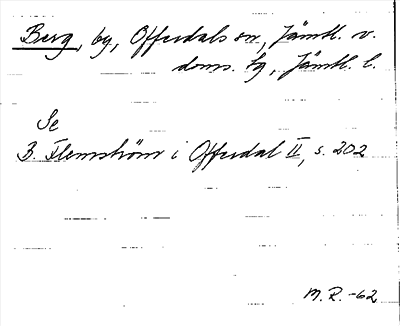 Berg, by, Offerdals sn, Jämtl. v.
doms. tg, Jämtl. l.
Se
B. Flemström i Offerdal II, s. 202
M.R. -62